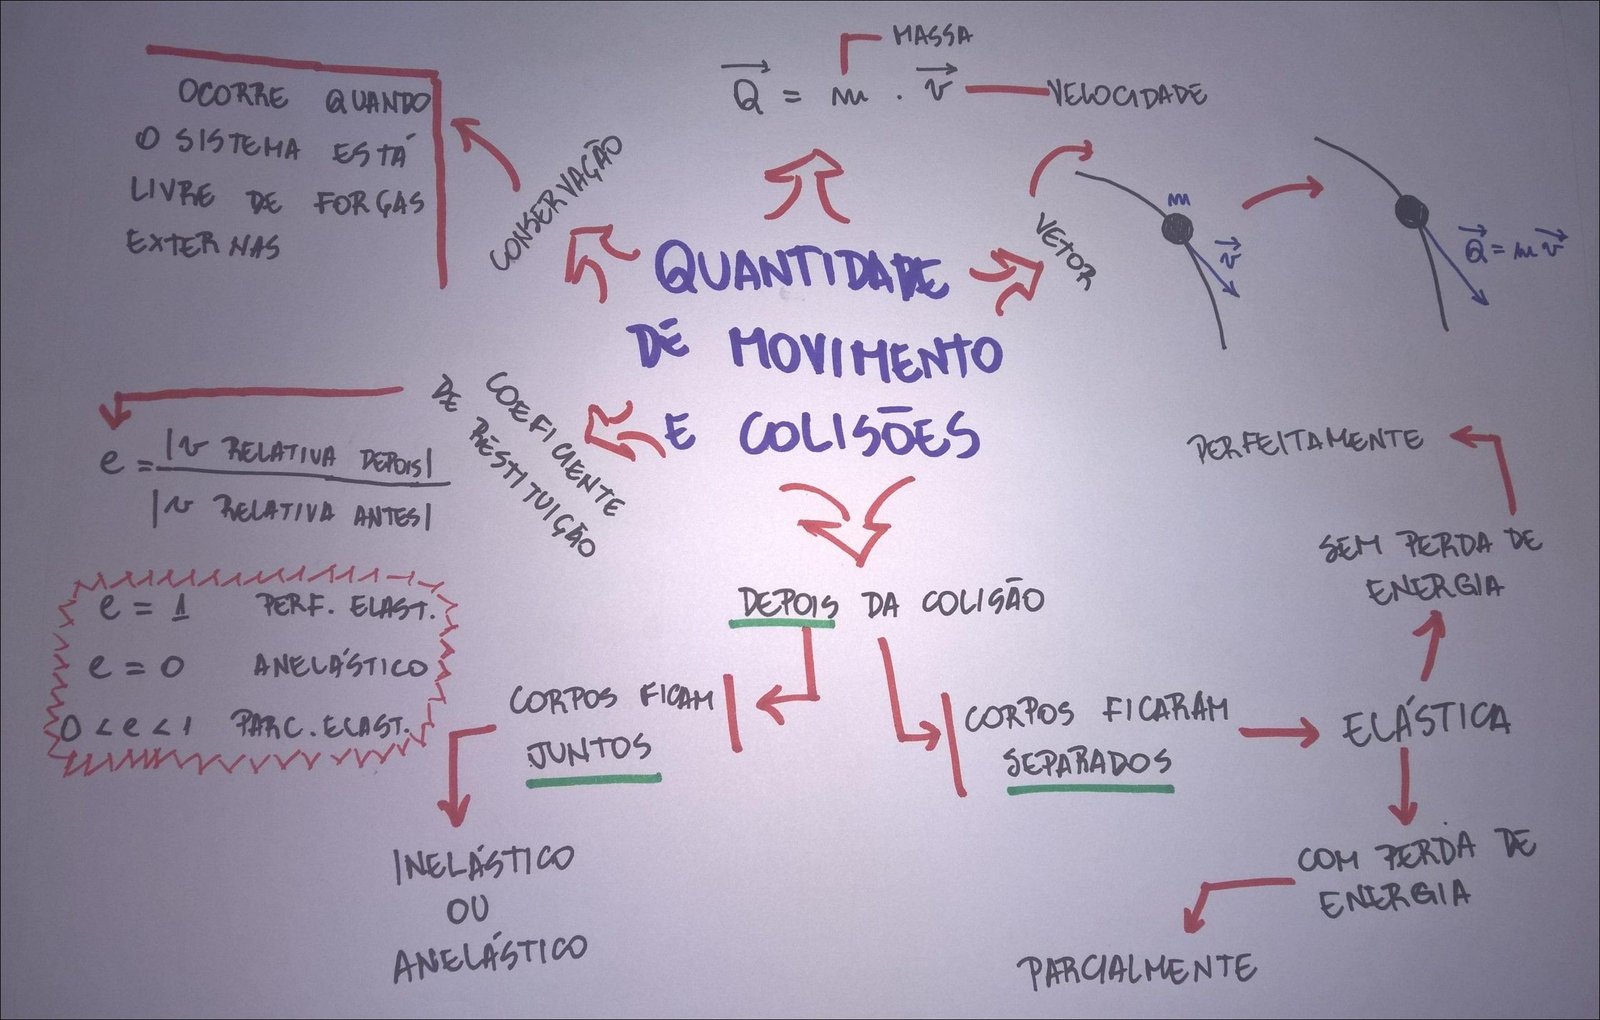 MASSA
Q = m . v
VELOCIDADE
OCORRE QUANDO
O SISTEMA ESTÁ
LIVRE DE FORÇAS
EXTERNAS
CONSERVAÇÃO
VETOR
m
v
Q = m v
QUANTIDADE
DE MOVIMENTO
E COLISÕES
COEFICIENTE
DE RESTITUIÇÃO
e = |v RELATIVA DEPOIS|
|v RELATIVA ANTES|
e = 1 PERF. ELAST.
e = 0 ANELÁSTICO
0 < e < 1 PARC. ELAST.
DEPOIS DA COLISÃO
CORPOS FICAM
JUNTOS
INELÁSTICO
OU
ANELÁSTICO
CORPOS FICARAM
SEPARADOS
ELÁSTICA
SEM PERDA DE
ENERGIA
PERFEITAMENTE
COM PERDA DE
ENERGIA
PARCIALMENTE